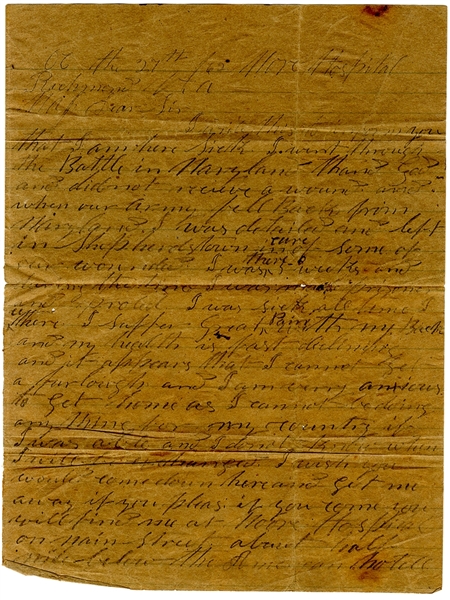 Oc the 27th for More Hospital
Richmond Va
Dear Sir
you
that I am here Sick I went through
the Battle in Maryland thank God
and did not recieve a wound and
when our army fell Back from
Maryland I was detailed and left
in Shepherdstown care some of
our wounded I was there 3 weeks and
I was
and I was sick all time I
there I suffer Great Pain with my Back
and my health is fast declining
and it appears that I cannot get
a furlough and I am very anxious
to get home as I cannot
any thing for my country if
I was able and I dont know when
I will I wish you
would come down here and get me
away if you pleas if you come you
will find me at Moore Hospital
on main Street about half
mile below the American hotell